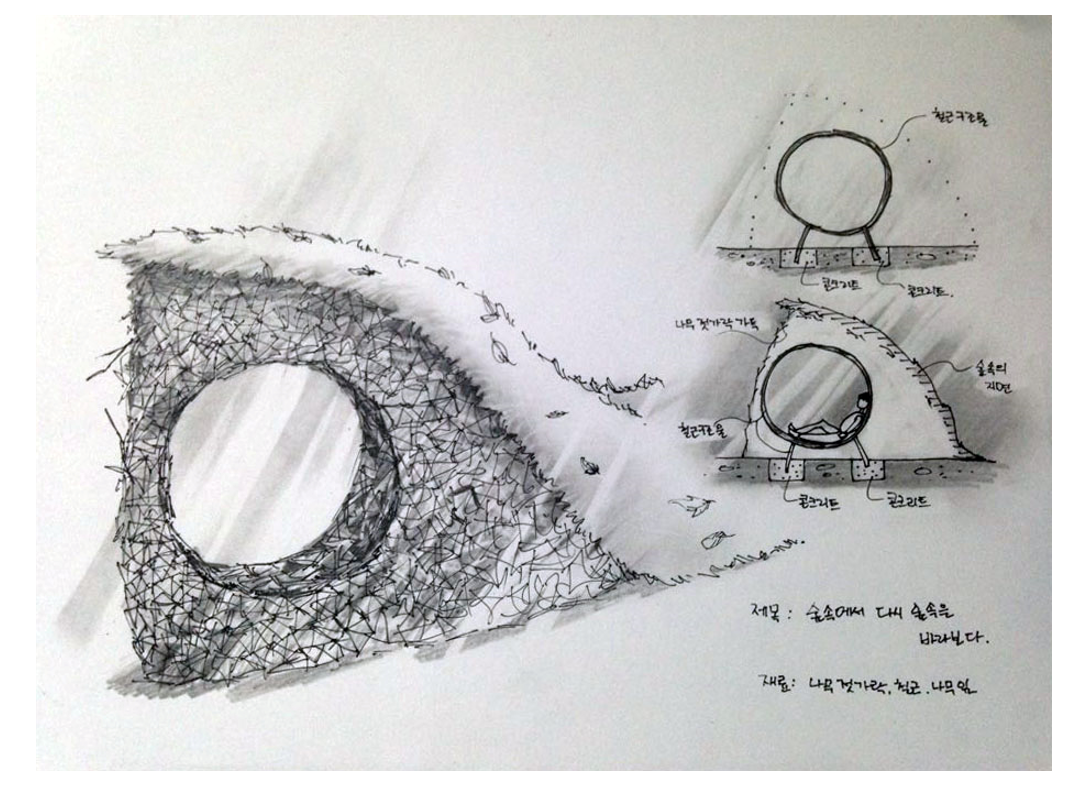 철근구조물
콘크리트
콘크리트.
나무젓가락 가득
숲속의
지면
철근구조물
콘크리트
콘크리트
제목: 숲속에서 다시 숲속을
바라보다.
재료: 나무젓가락, 철근, 나무잎